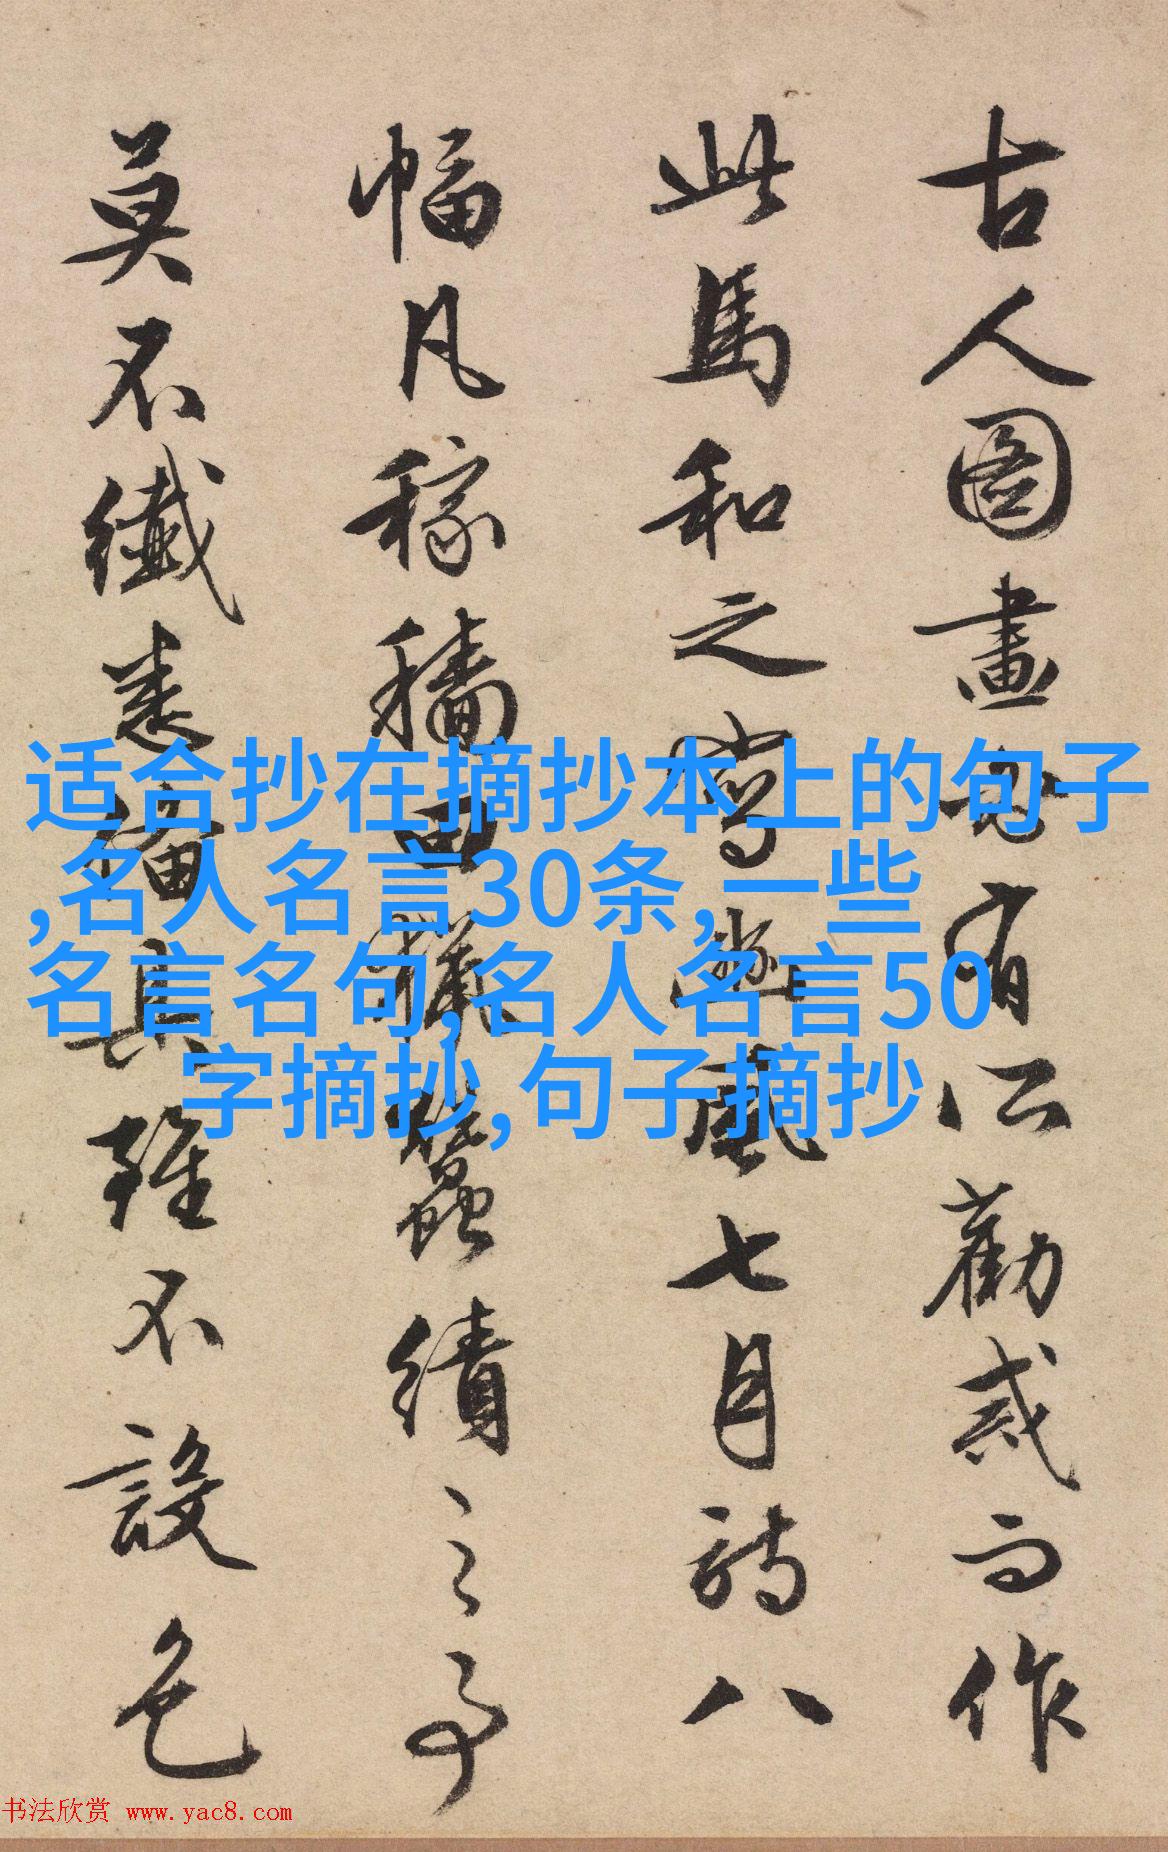 古人圖畫有所勸戒而作
此馬和之寫豳風七月詩八
幅凡稼穡田獵蠶績之事
莫不纖悉備具雖不設色
适合抄在摘抄本上的句子
,名人名言30条,一些
名言名句,名人名言50
字摘抄,句子摘抄
书法欣赏 www.yac8.com